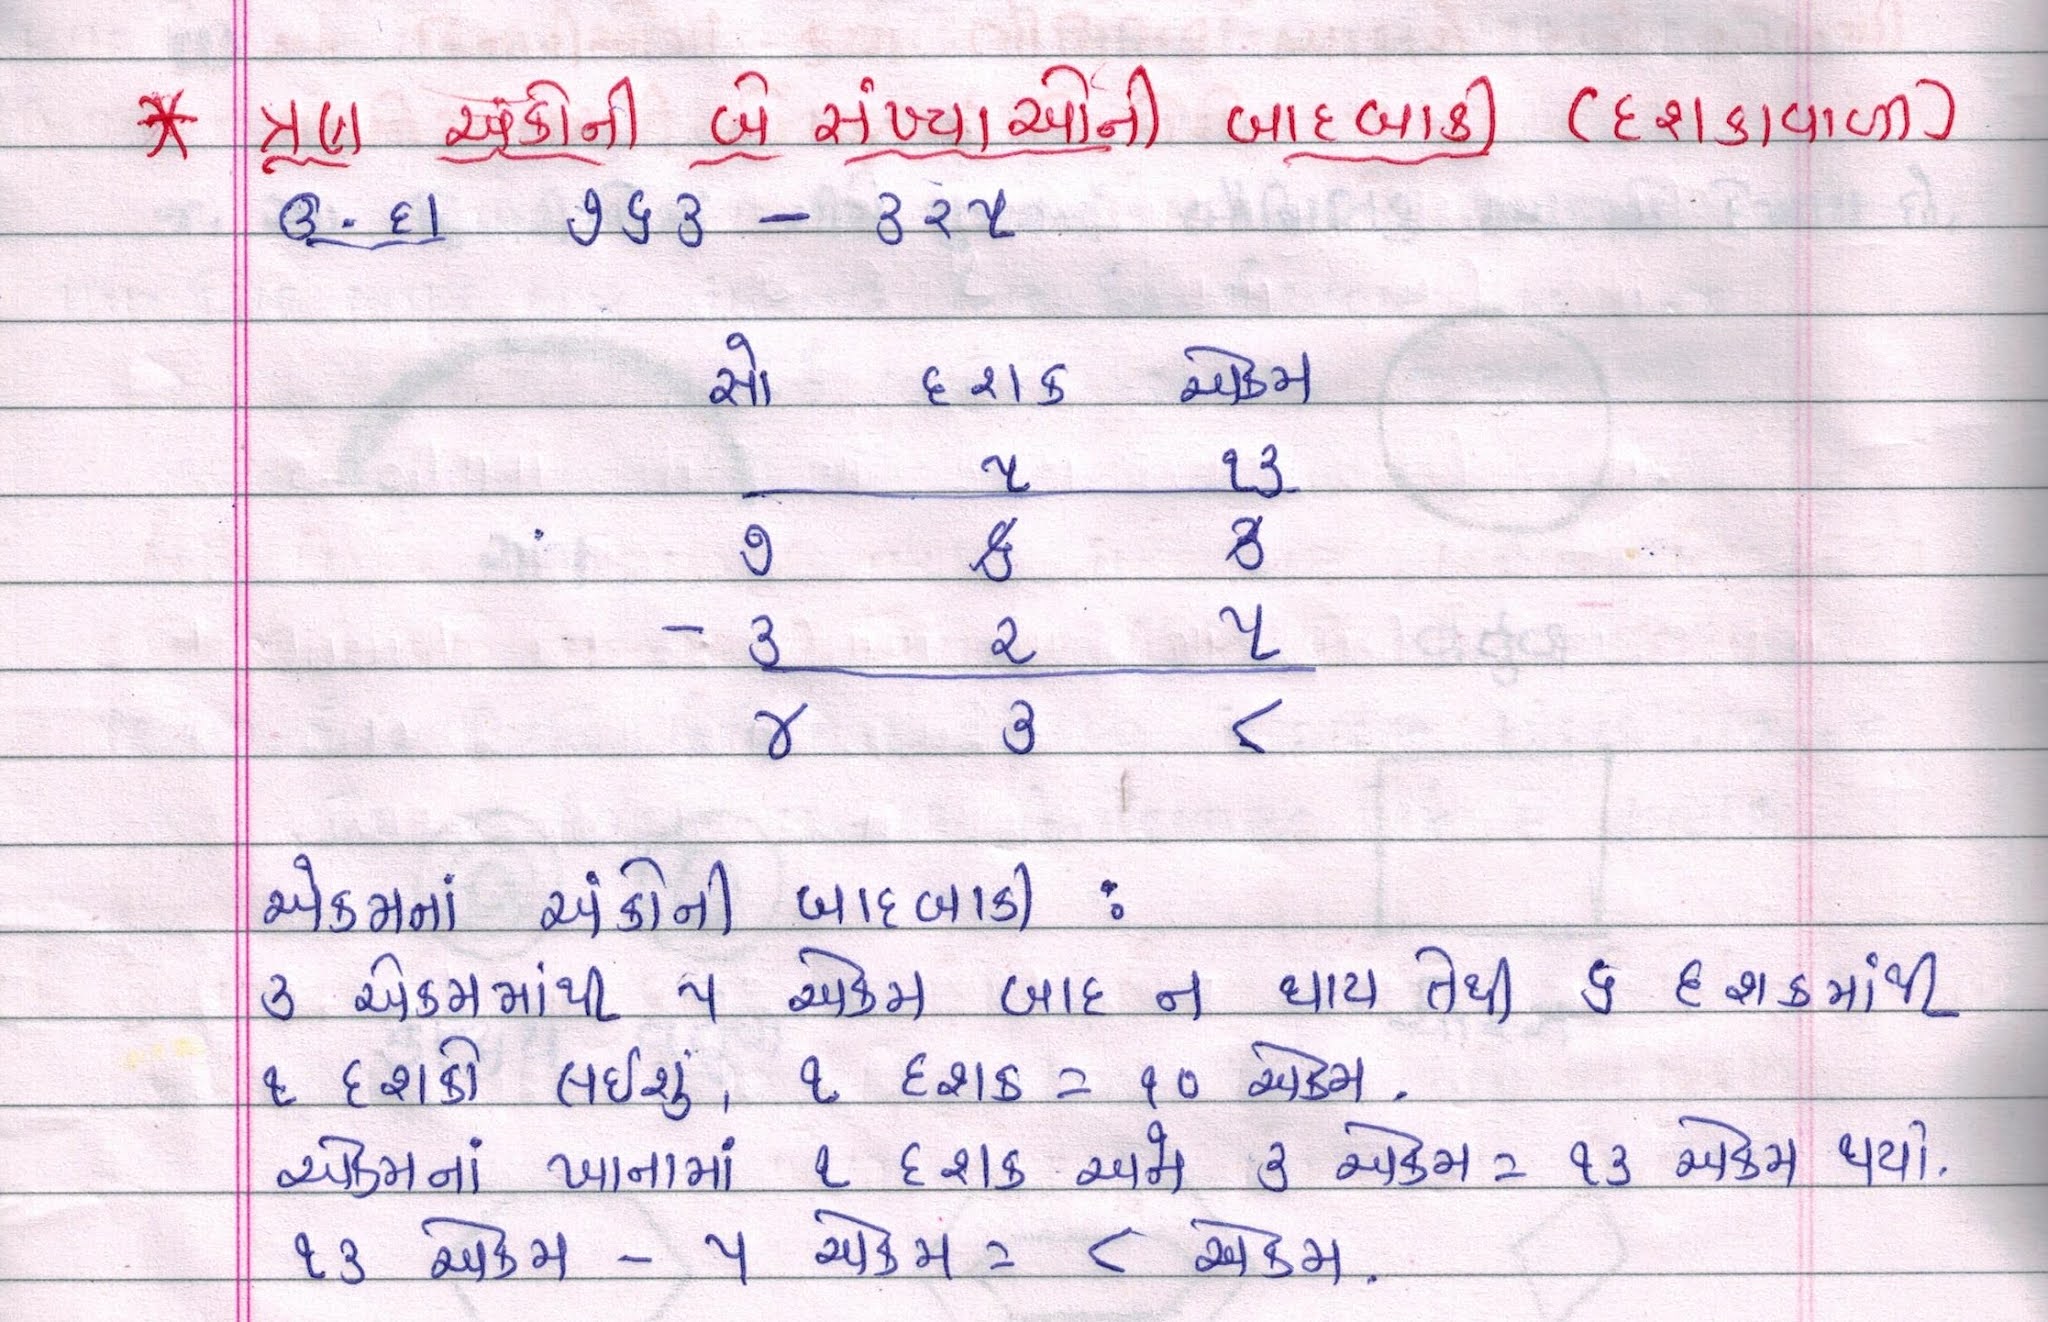 * ત્રણ અંકોની બે સંખ્યાઓની બાદબાકી (દશકાવાળી)
ઉ.દા ૭૬૩ - ૩૨૫
સો દશક એકમ
૫ ૧૩
૭ ૬ ૩
- ૩ ૨ ૫
૪ ૩ ૮
એકમનાં અંકોની બાદબાકી :
૩ એકમમાંથી ૫ એકમ બાદ ન થાય તેથી ૬ દશકમાંથી
૧ દશકો લઈશું, ૧ દશક = ૧૦ એકમ.
એકમનાં ખાનામાં ૧ દશક અને ૩ એકમ = ૧૩ એકમ થયો.
૧૩ એકમ - ૫ એકમ = ૮ એકમ.